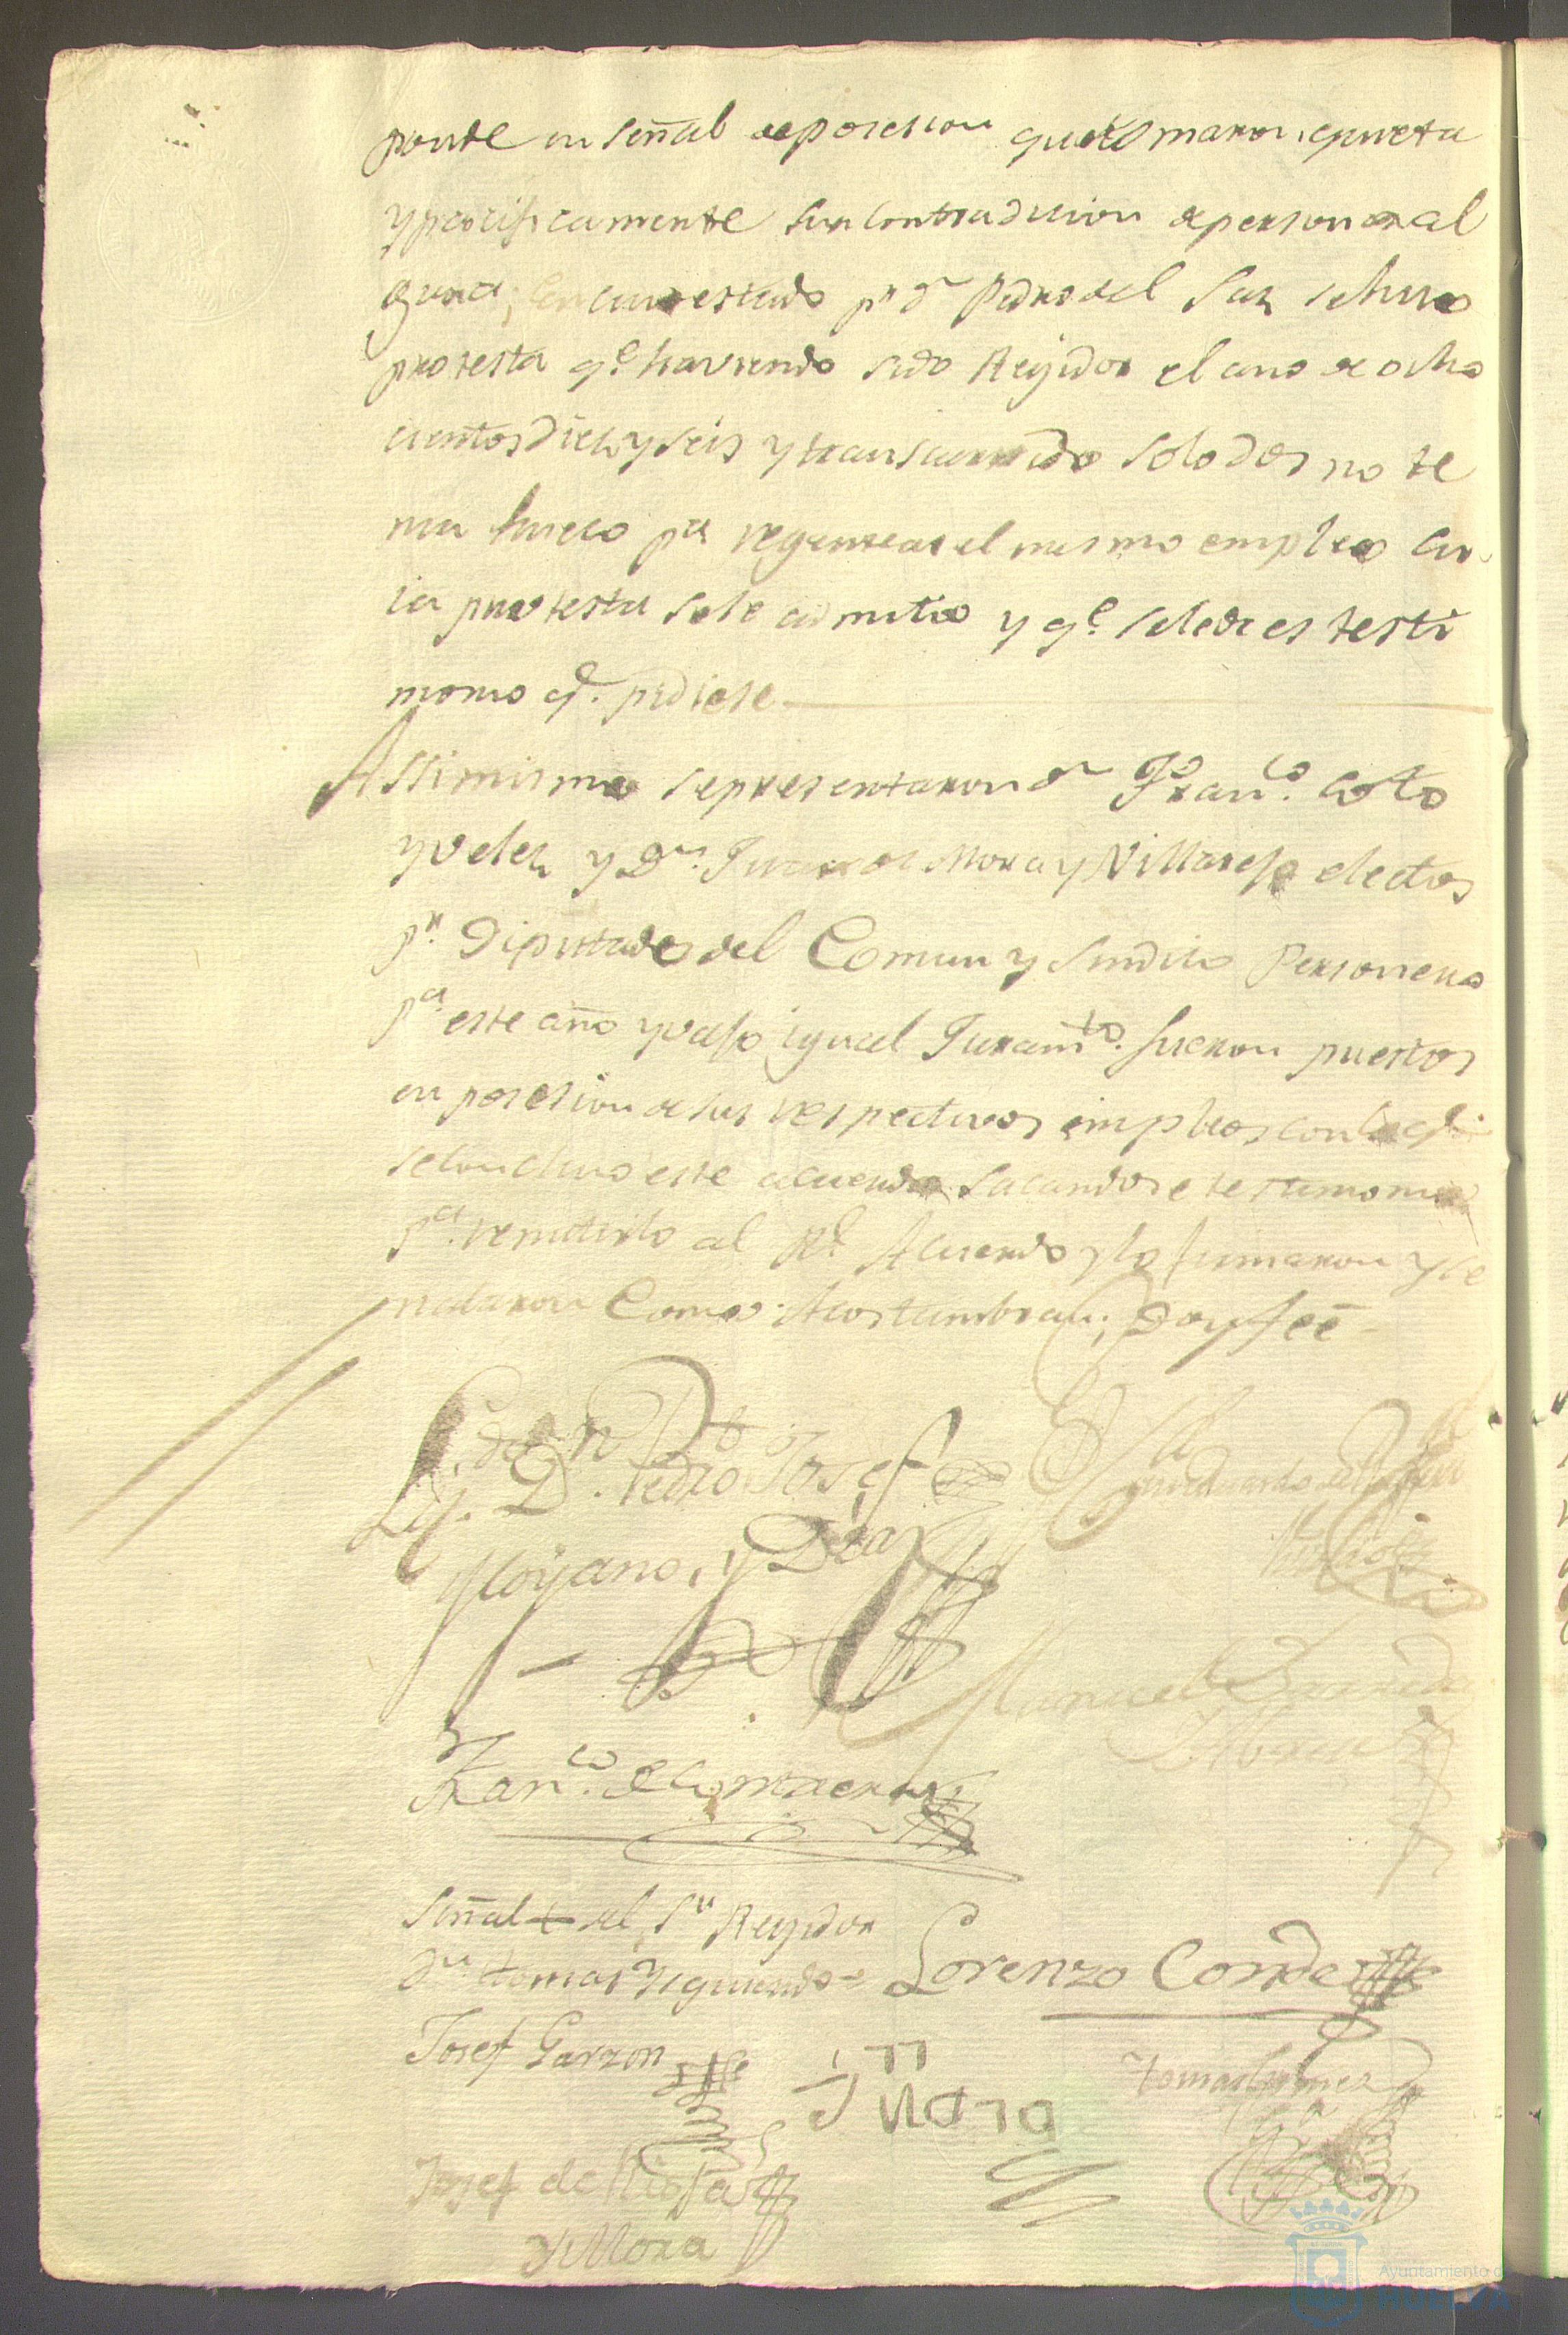 ponde en señal de posesion que tomaron, quieta
y pacificamente sin contradicion de persona al
guna; en cuio estado pr dn Pedro del Saz se hizo
protesta qe haviendo sido Regidor el año de ocho
cientos diez y seis y transcurrido solo dos no te
nia hueco pa regentear el mismo empleo cu
ia protesta se le admitio y qe se le de es testi
monio qe pidiese
Assimismo se presentaron dn Franco Coto
y Velez y Dn Juan de Mora y Villarejo electos
pr Diputados del Comun y Sindico Personero
pa este año y vajo igual Juramto fueron puestos
en posesion de sus respectivos empleos con lo qe
se concluio este acuerdo sacandose testimonio
pa remitirlo al Rl Acuerdo y lo firmaron y se
ñalaron como Acostumbran, Doy fee
Lic. Dn Pedro Josef
Moyano, y Diaz
Manuel Barreda
Franco de Comaera
Señal + del Sr Regidor
Dn tomas Yzquierdo =
Lorenzo Conde
Josef Garzon
tomas Gomez
Josef de
y Mora
Ayuntamiento de
HUELVA